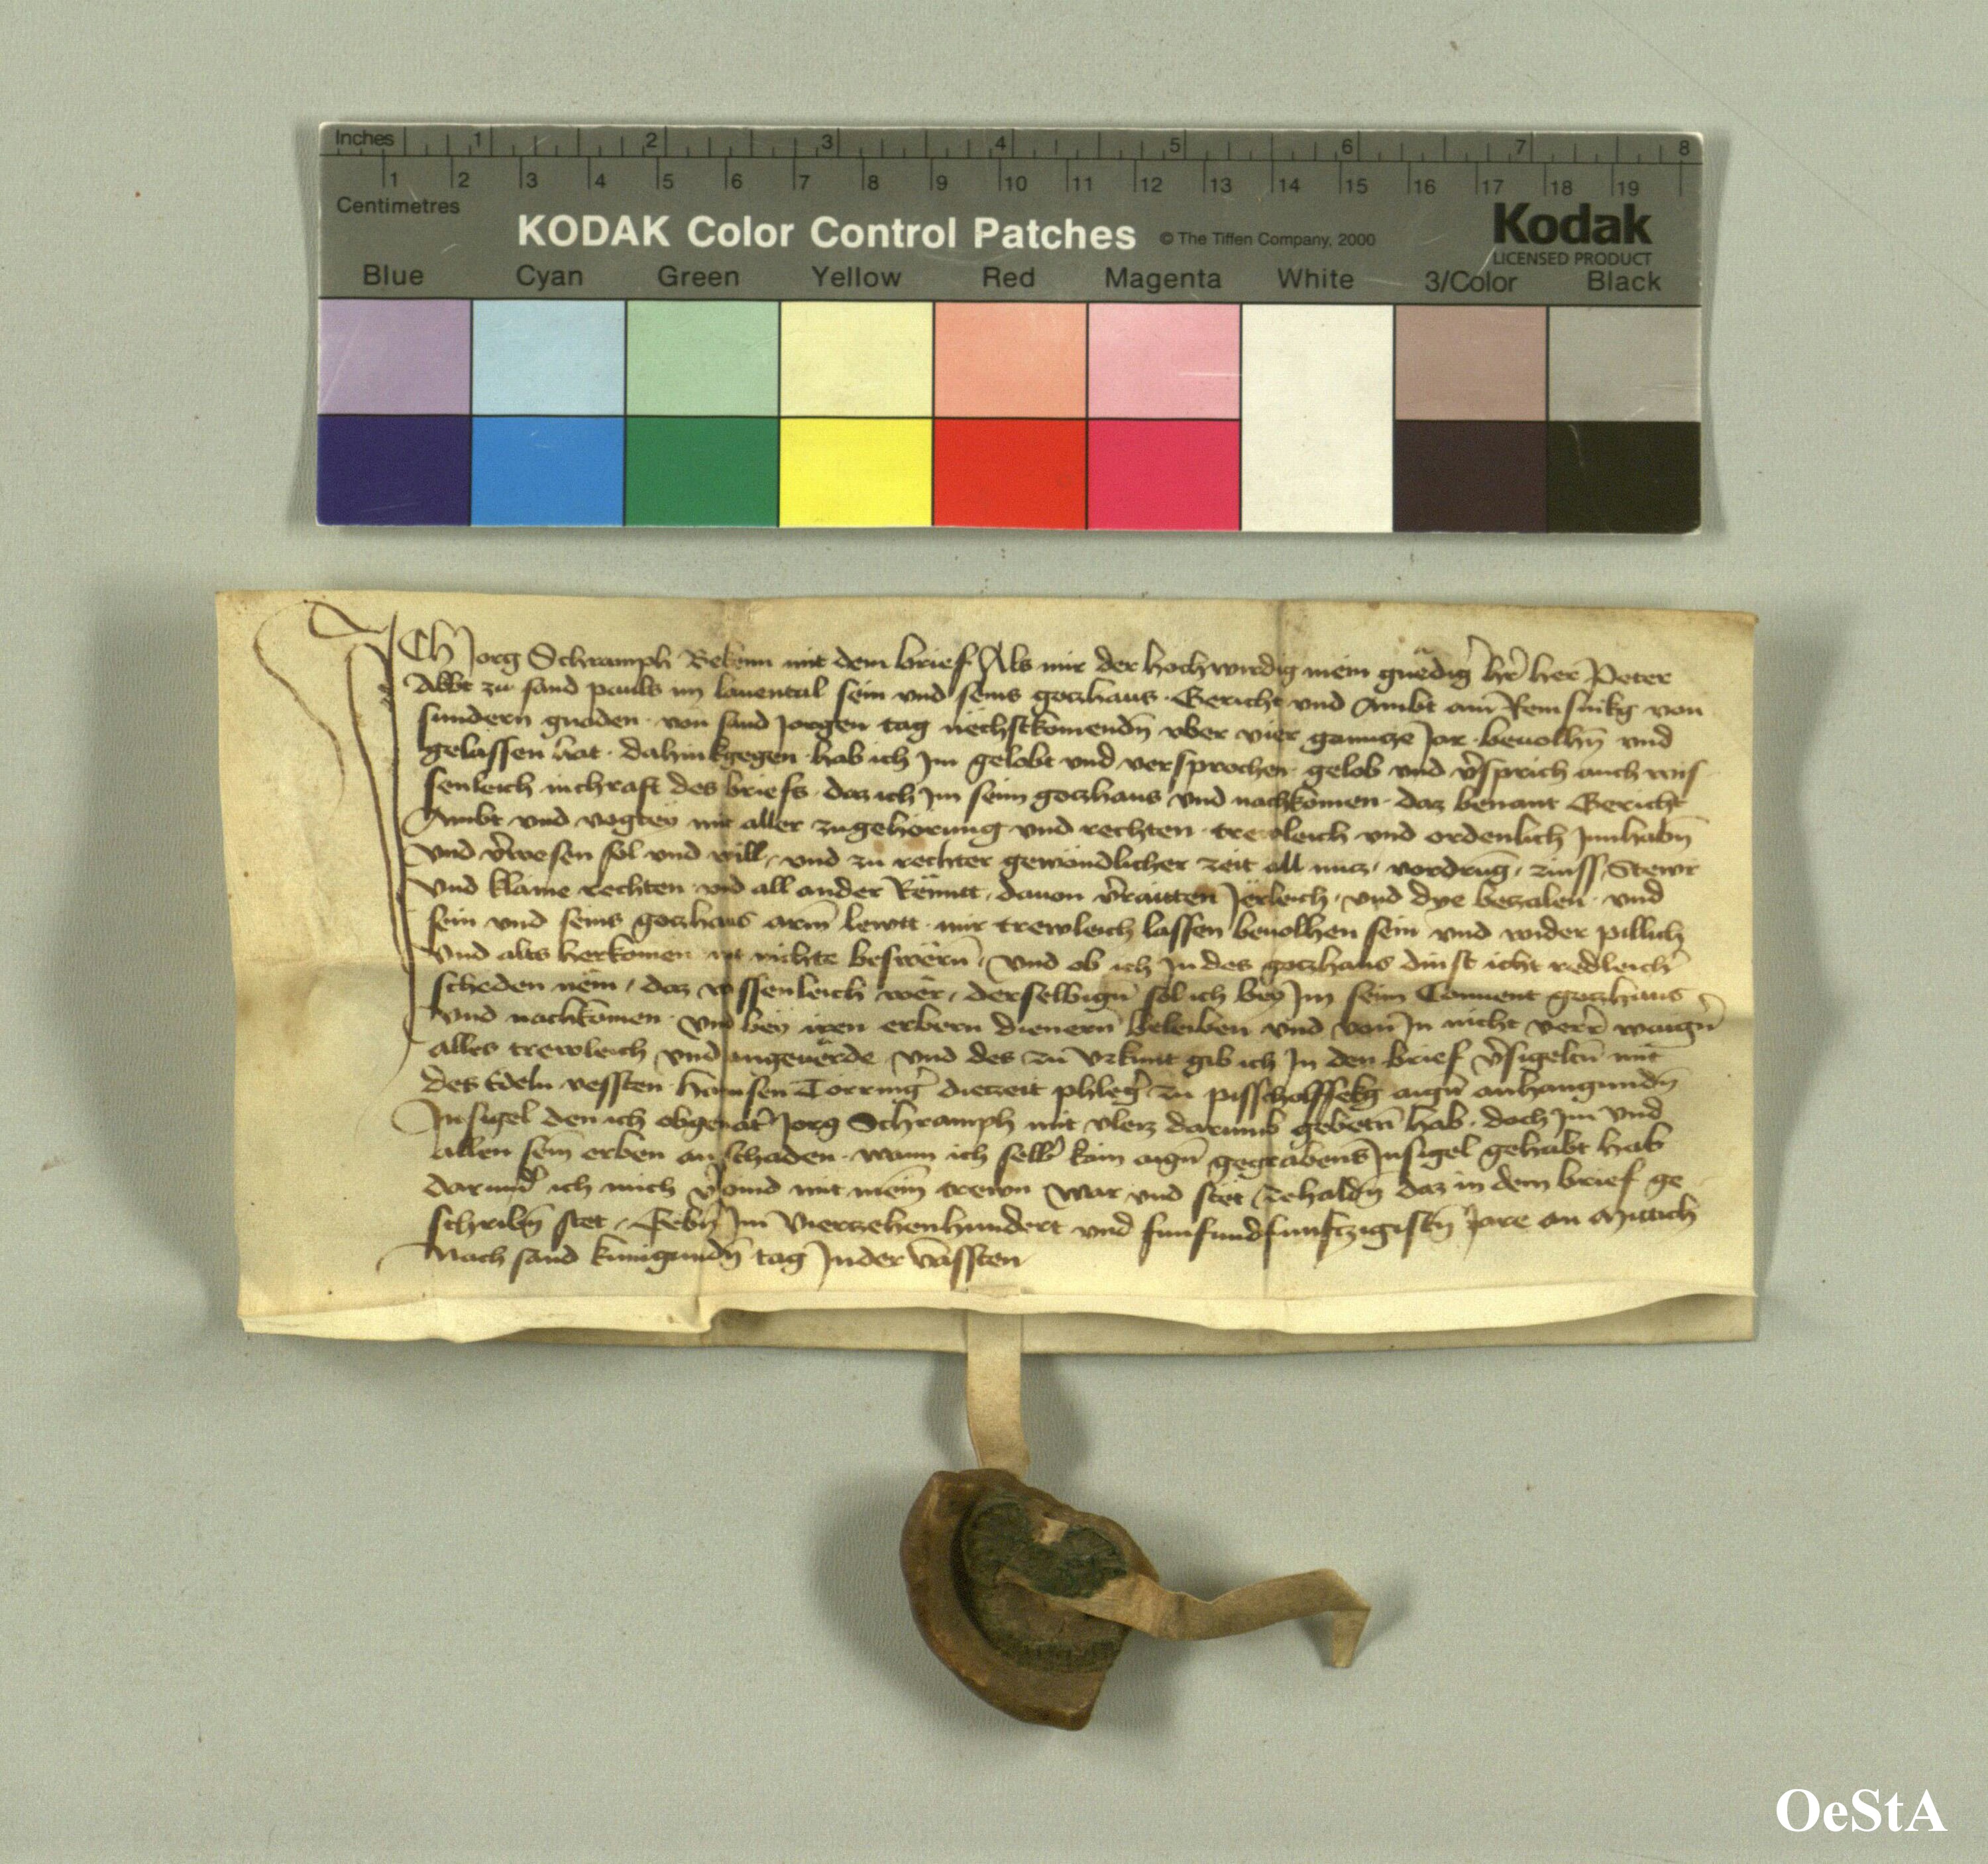 Inches 1 2 3 4 5 6 7 8
1 2 3 4 5 6 7 8 9 10 11 12 13 14 15 16 17 18 19
Centimetres
KODAK Color Control Patches © The Tiffen Company, 2000 Kodak
LICENSED PRODUCT
Blue Cyan Green Yellow Red Magenta White 3/Color Black
Ich Jorg Schramph Bekenn mit dem brief Als mir der hochwirdig mein gnedig her Peter
Abbt zu sand pauls im lauental sein vnd seins goczhaus Gericht vnd Ambt am Remsnikg von
sundern gnaden von sand Jorgen tag nechstkomendn vber vier gancze Jar beuolhn vnd
gelassen hat dahinkgegen hab ich Im gelobt vnd versprochen gelob vnd vsprich auch wis
senleich in chraft des briefs daz ich Im seim goczhaus vnd nachkomen daz benant Gericht
Ambt vnd vogtey mit aller zugehorung vnd rechten trewleich vnd ordenlich Innhabn
vnd vwesen sol vnd will vnd zu rechter gewondlicher zeit all nucz vordrug zinss Stewr
vnd klaine rechten vnd all ander Rennt dauon vraitten Jerleich vnd dye bezalen vnd
sein vnd seins goczhaus arm lewtt mir trewleich lassen beuolhen sein vnd wider pillich
vnd alts herkomen mit nichte beswern vnd ob ich In des goczhaus dinst icht redleich
scheden nem daz wissenleich wer derselbign sol ich bey Im seim Conuent goczhaus
vnd nachkomen vnd bey iren erbern dienern beleiben vnd von In nicht verr waign
alles trewleich vnd angeuerde vnd des zu vrkunt gib ich In den brief vsigeltn mit
des Edeln vessten Hannsen Torring diezeit phleg zu pisscholffekg aign anhangundn
Insigel den ich obgenat Jorg Schramph mit vleiz darumb gebetn hab doch Im vnd
allen sein erben an schaden wann ich selb kain aign gegrabens Insigel gehabt hab
darund ich mich vpind mit mein trewn war vnd stet zehaldn daz in dem brief ge
schribn stet Gebn Im Vierzehenhundert vnd funfundfunfczigistn Jare an Mittich
Nach sand kunigundn tag In der vassten
OeStA